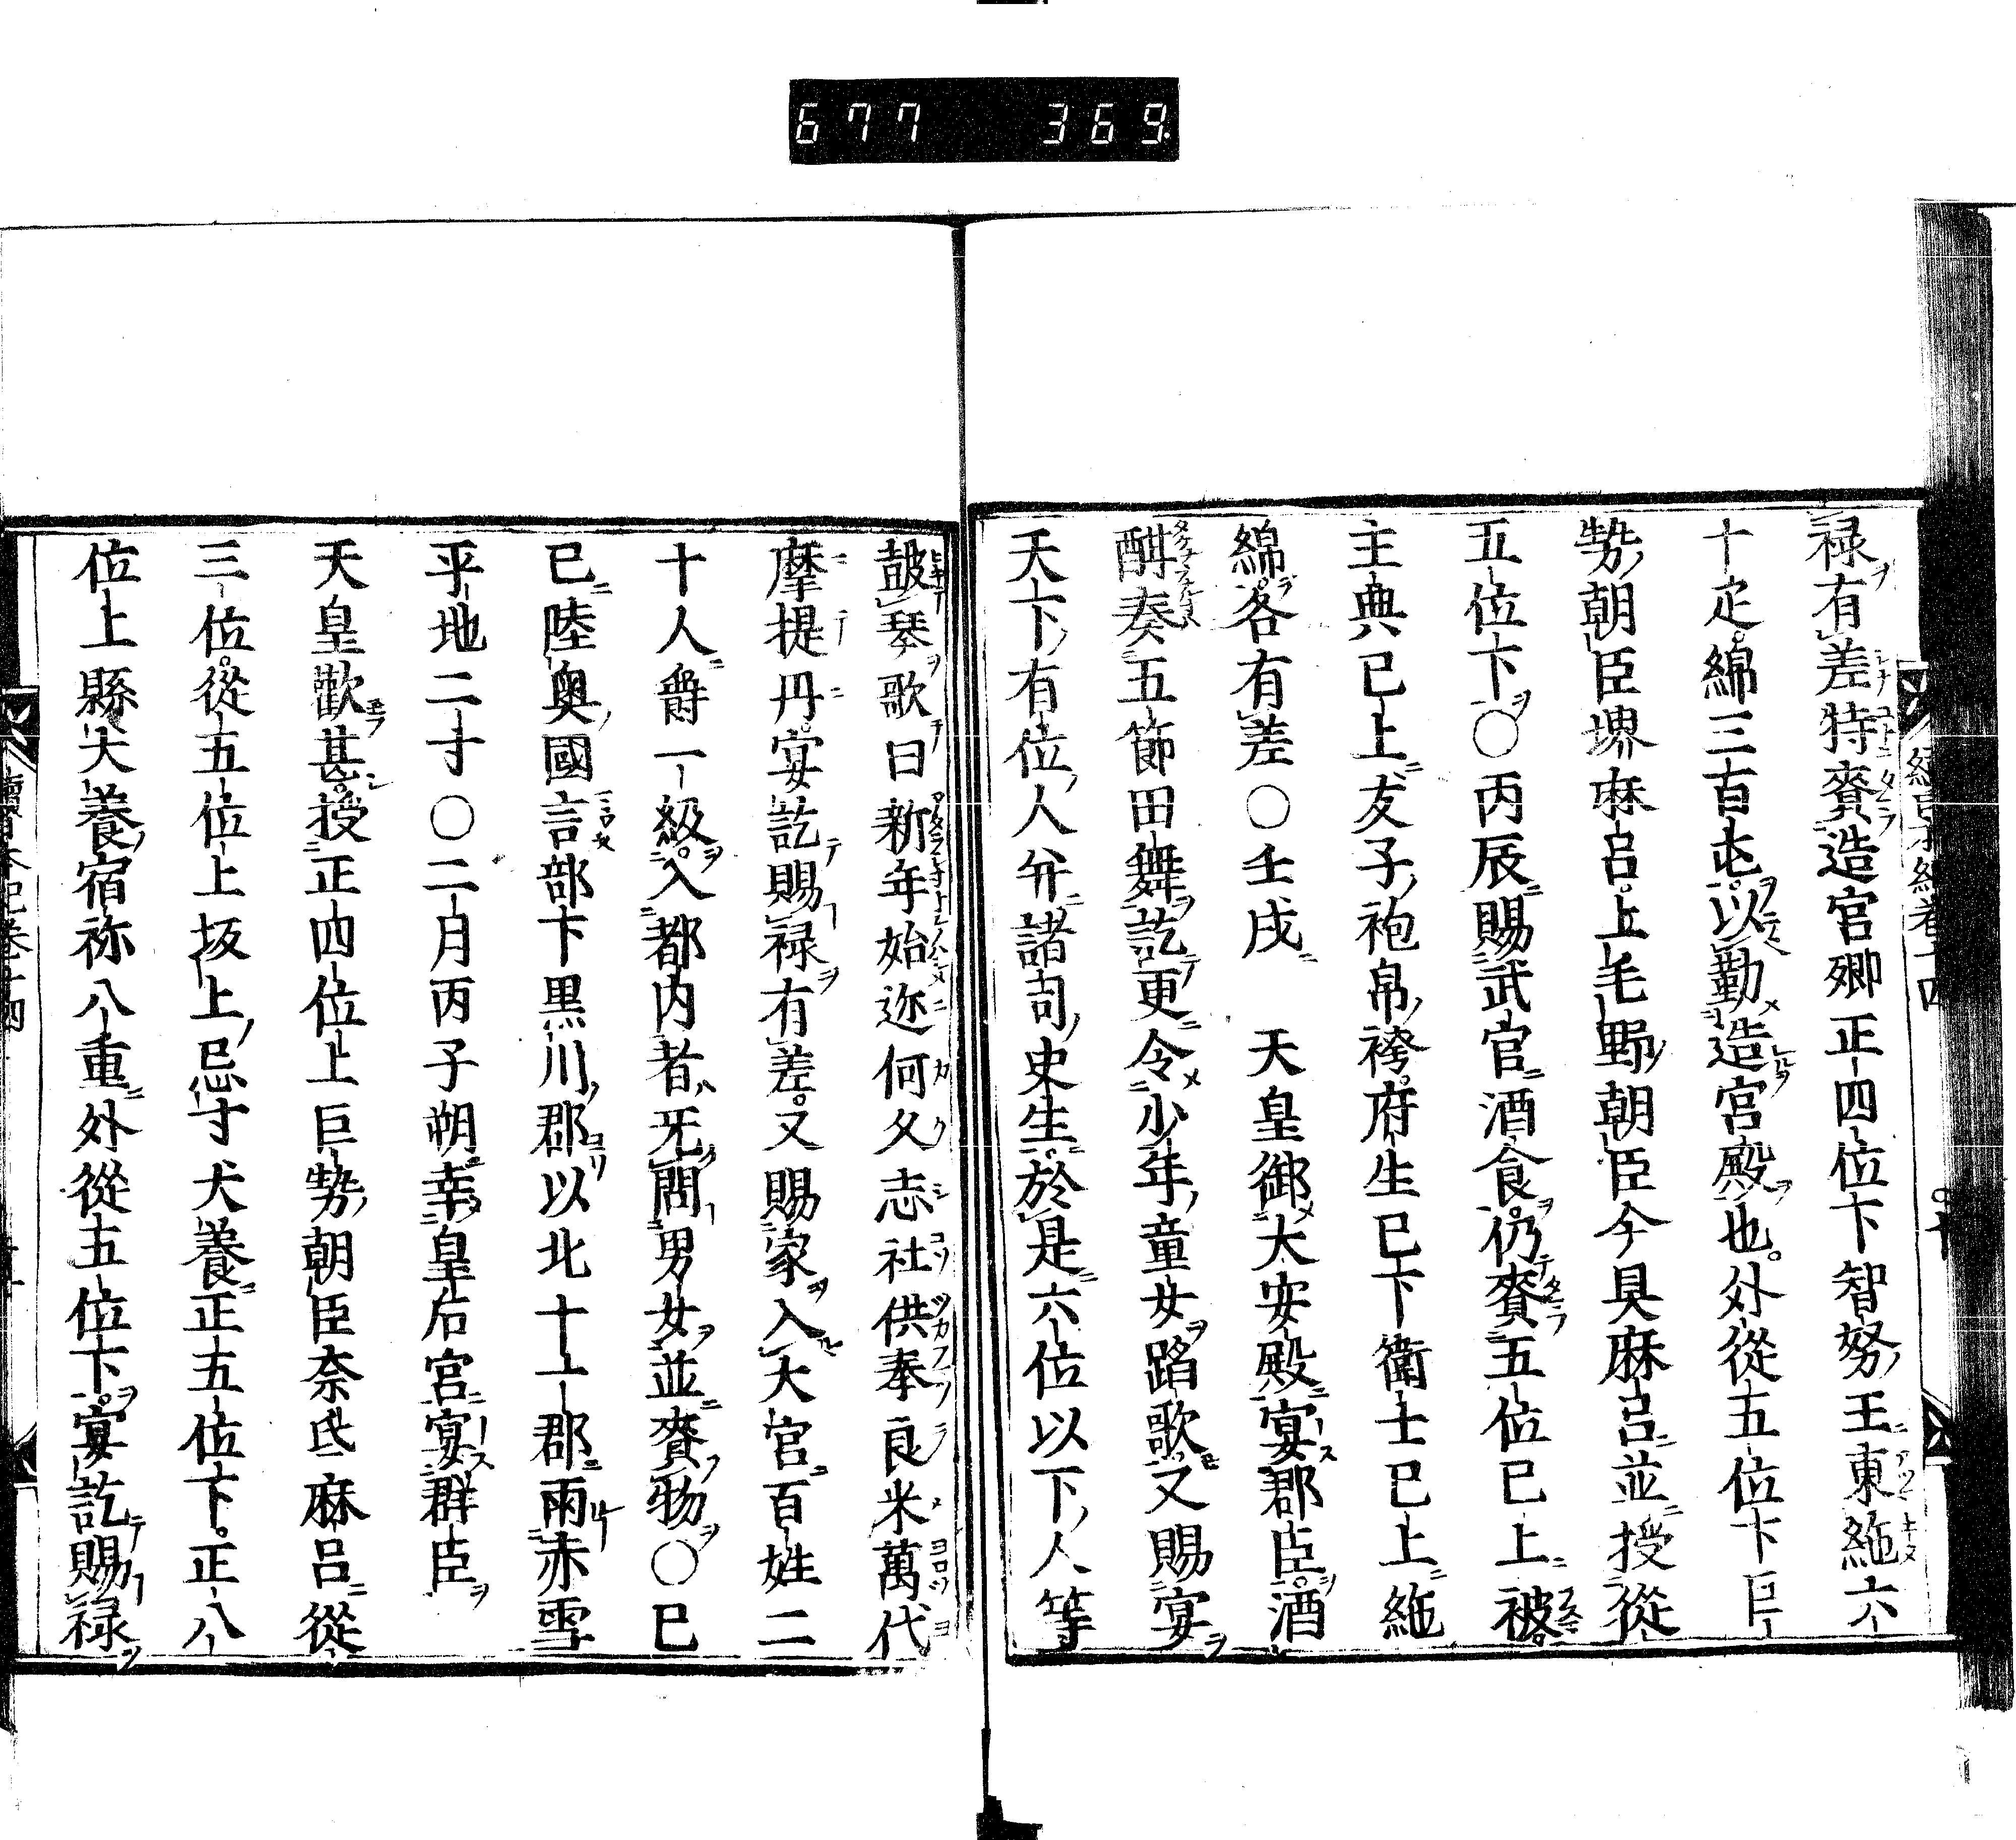 677 369
禄有差特賚造宮卿正四位下智努王東絁六
十疋綿三百屯以勤造宮殿也外從五位下巨
勢朝臣堺麻呂上毛野朝臣今具麻呂並授從
五位下○丙辰賜武官酒食仍賚五位已上被
主典已上支子袍帛袴府生已下衛士已上絁
綿各有差○壬戌 天皇御大安殿宴郡臣酒
酣奏五節田舞訖更令少年童女蹈歌又賜宴
天下有位人并諸司史生於是六位以下人等
皷琴歌曰新年始迩何久志社供奉良米萬代
摩提丹宴訖賜禄有差又賜家入大宮百姓二
十人爵一級入都内者无問男女並賚物○己
巳陸奥國言部下黒川郡以北十一郡雨赤雪
平地二寸○二月丙子朔幸皇后宮宴群臣
天皇歡甚授正四位上巨勢朝臣奈氐麻呂從
三位從五位上坂上忌寸犬養正五位下正八
位上縣犬養宿祢八重外從五位下宴訖賜禄
續日本紀卷十四